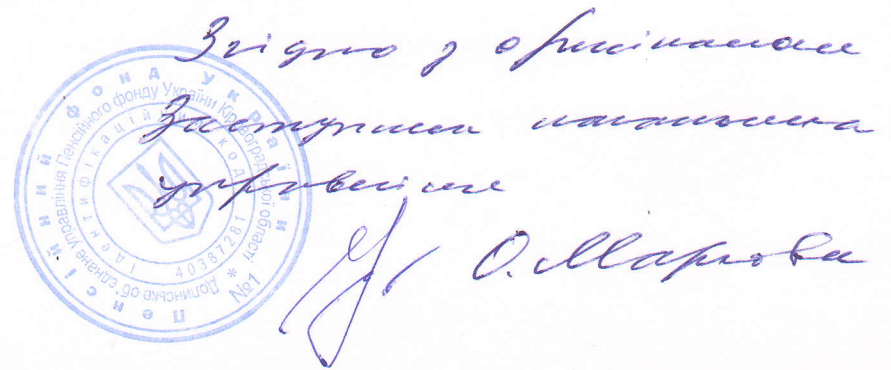 Згідно з оригіналом
Заступник начальника
управління
О. Маркова
Пенсійний фонд України
Долинське об'єднане управління Пенсійного фонду України Кіровоградської області
Ідентифікаційний код
40387281
* №1